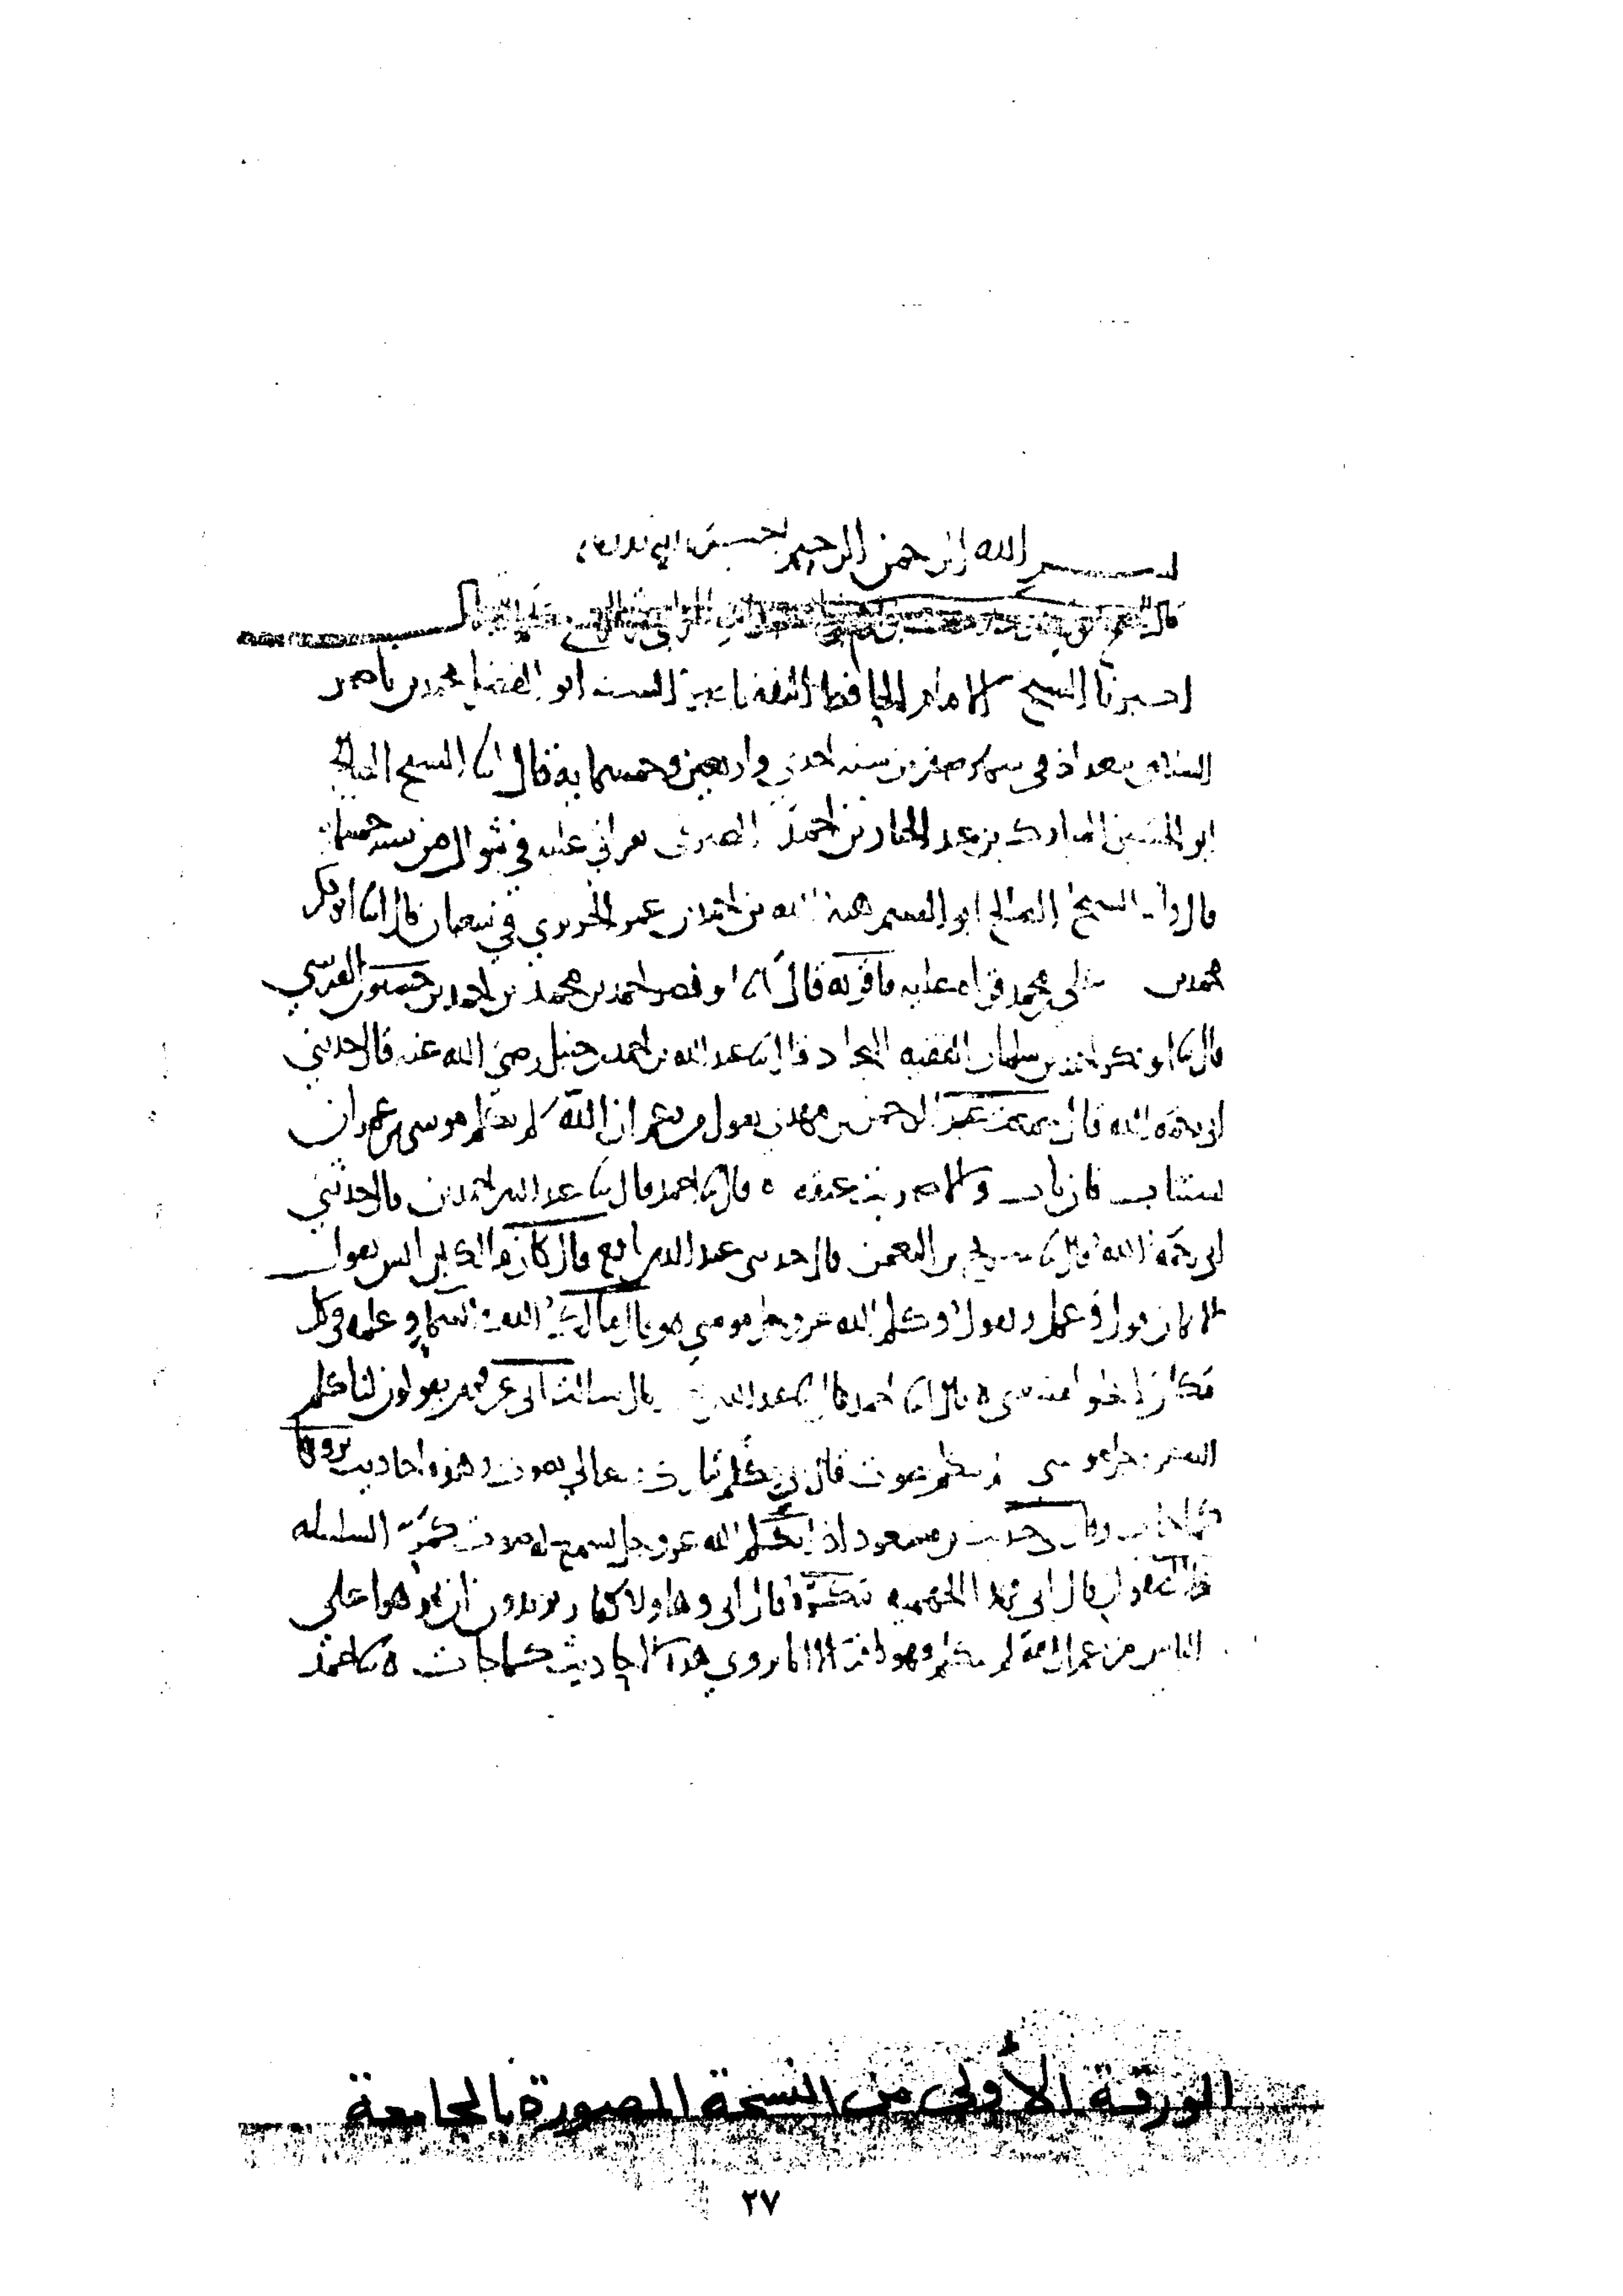 بسم الله الرحمن الرحيم
قال
اخبرنا الشيخ الامام الحافظ الثقة ناصر السنة ابو الفضل محمد بن ناصر
السلامي ببغداد في شهر صفر من سنة احدى واربعين وخمسماية قال انا الشيخ الصالح
ابو الحسين المبارك بن عبد الجبار بن احمد الصيرفي بقراتي عليه في شوال من سنة
قال انا الشيخ الصالح ابو القسم هبة الله بن احمد بن عمر الحريري في شعبان قال انا ابو بكر
محمد بن علي بن محمد قراه عليه فاقر به قال انا ابو نصر احمد بن محمد بن احمد بن حسنون النرسي
قال ثنا ابو بكر احمد بن سلمان الفقيه النجاد قال ثنا عبد الله بن احمد بن حنبل رضي الله عنه قال حدثني
ابي رحمه الله قال سمعت عبد الرحمن بن مهدي يقول من زعم ان الله لم يكلم موسى بن عمران
يستتاب فان تاب والا ضربت عنقه ه قال ثنا احمد قال ثنا عبد الله بن احمد قال حدثني
ابي رحمه الله قال ثنا سريج بن النعمن قال حدثني عبد الله بن نافع قال كان مالك بن انس يقول
الايمان قول وعمل ويقول وكلم الله عز وجل موسى وقال مالك الله في السماء وعلمه في كل
مكان لا يخلوا منه شي ه قال انا احمد قال ثنا عبد الله قال سالت ابي عن قوم يقولون لما كلم
الله عز وجل موسى لم يتكلم بصوت فقال ابي تكلم تبارك وتعالى بصوت وهذه احاديث نرويها
كما جات وقال ابي حديث بن مسعود اذا تكلم الله عز وجل يسمع له صوت كمر السلسلة
على الصفوان قال ابي وهذا الجهمية تنكره قال ابي وهاولا كفار يريدون ان يموهوا على
الناس من زعم ان الله لم يتكلم فهو كافر الا انا نروي هذه الاحاديث كما جات ه
الورقة الأولى من النسخة المصورة بالجامعة
٢٧